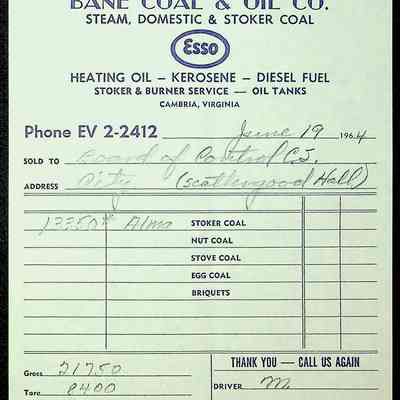 BANE COAL & OIL CO.
STEAM, DOMESTIC & STOKER COAL
Esso
HEATING OIL — KEROSENE — DIESEL FUEL
STOKER & BURNER SERVICE — OIL TANKS
CAMBRIA, VIRGINIA
Phone EV 2-2412 June 19 1964
SOLD TO Board of Control C.I.
ADDRESS City (Scattergood Hall)
13350# Alma STOKER COAL
NUT COAL
STOVE COAL
EGG COAL
BRIQUETS
Gross 21750
Tare 8400
THANK YOU — CALL US AGAIN
DRIVER M.